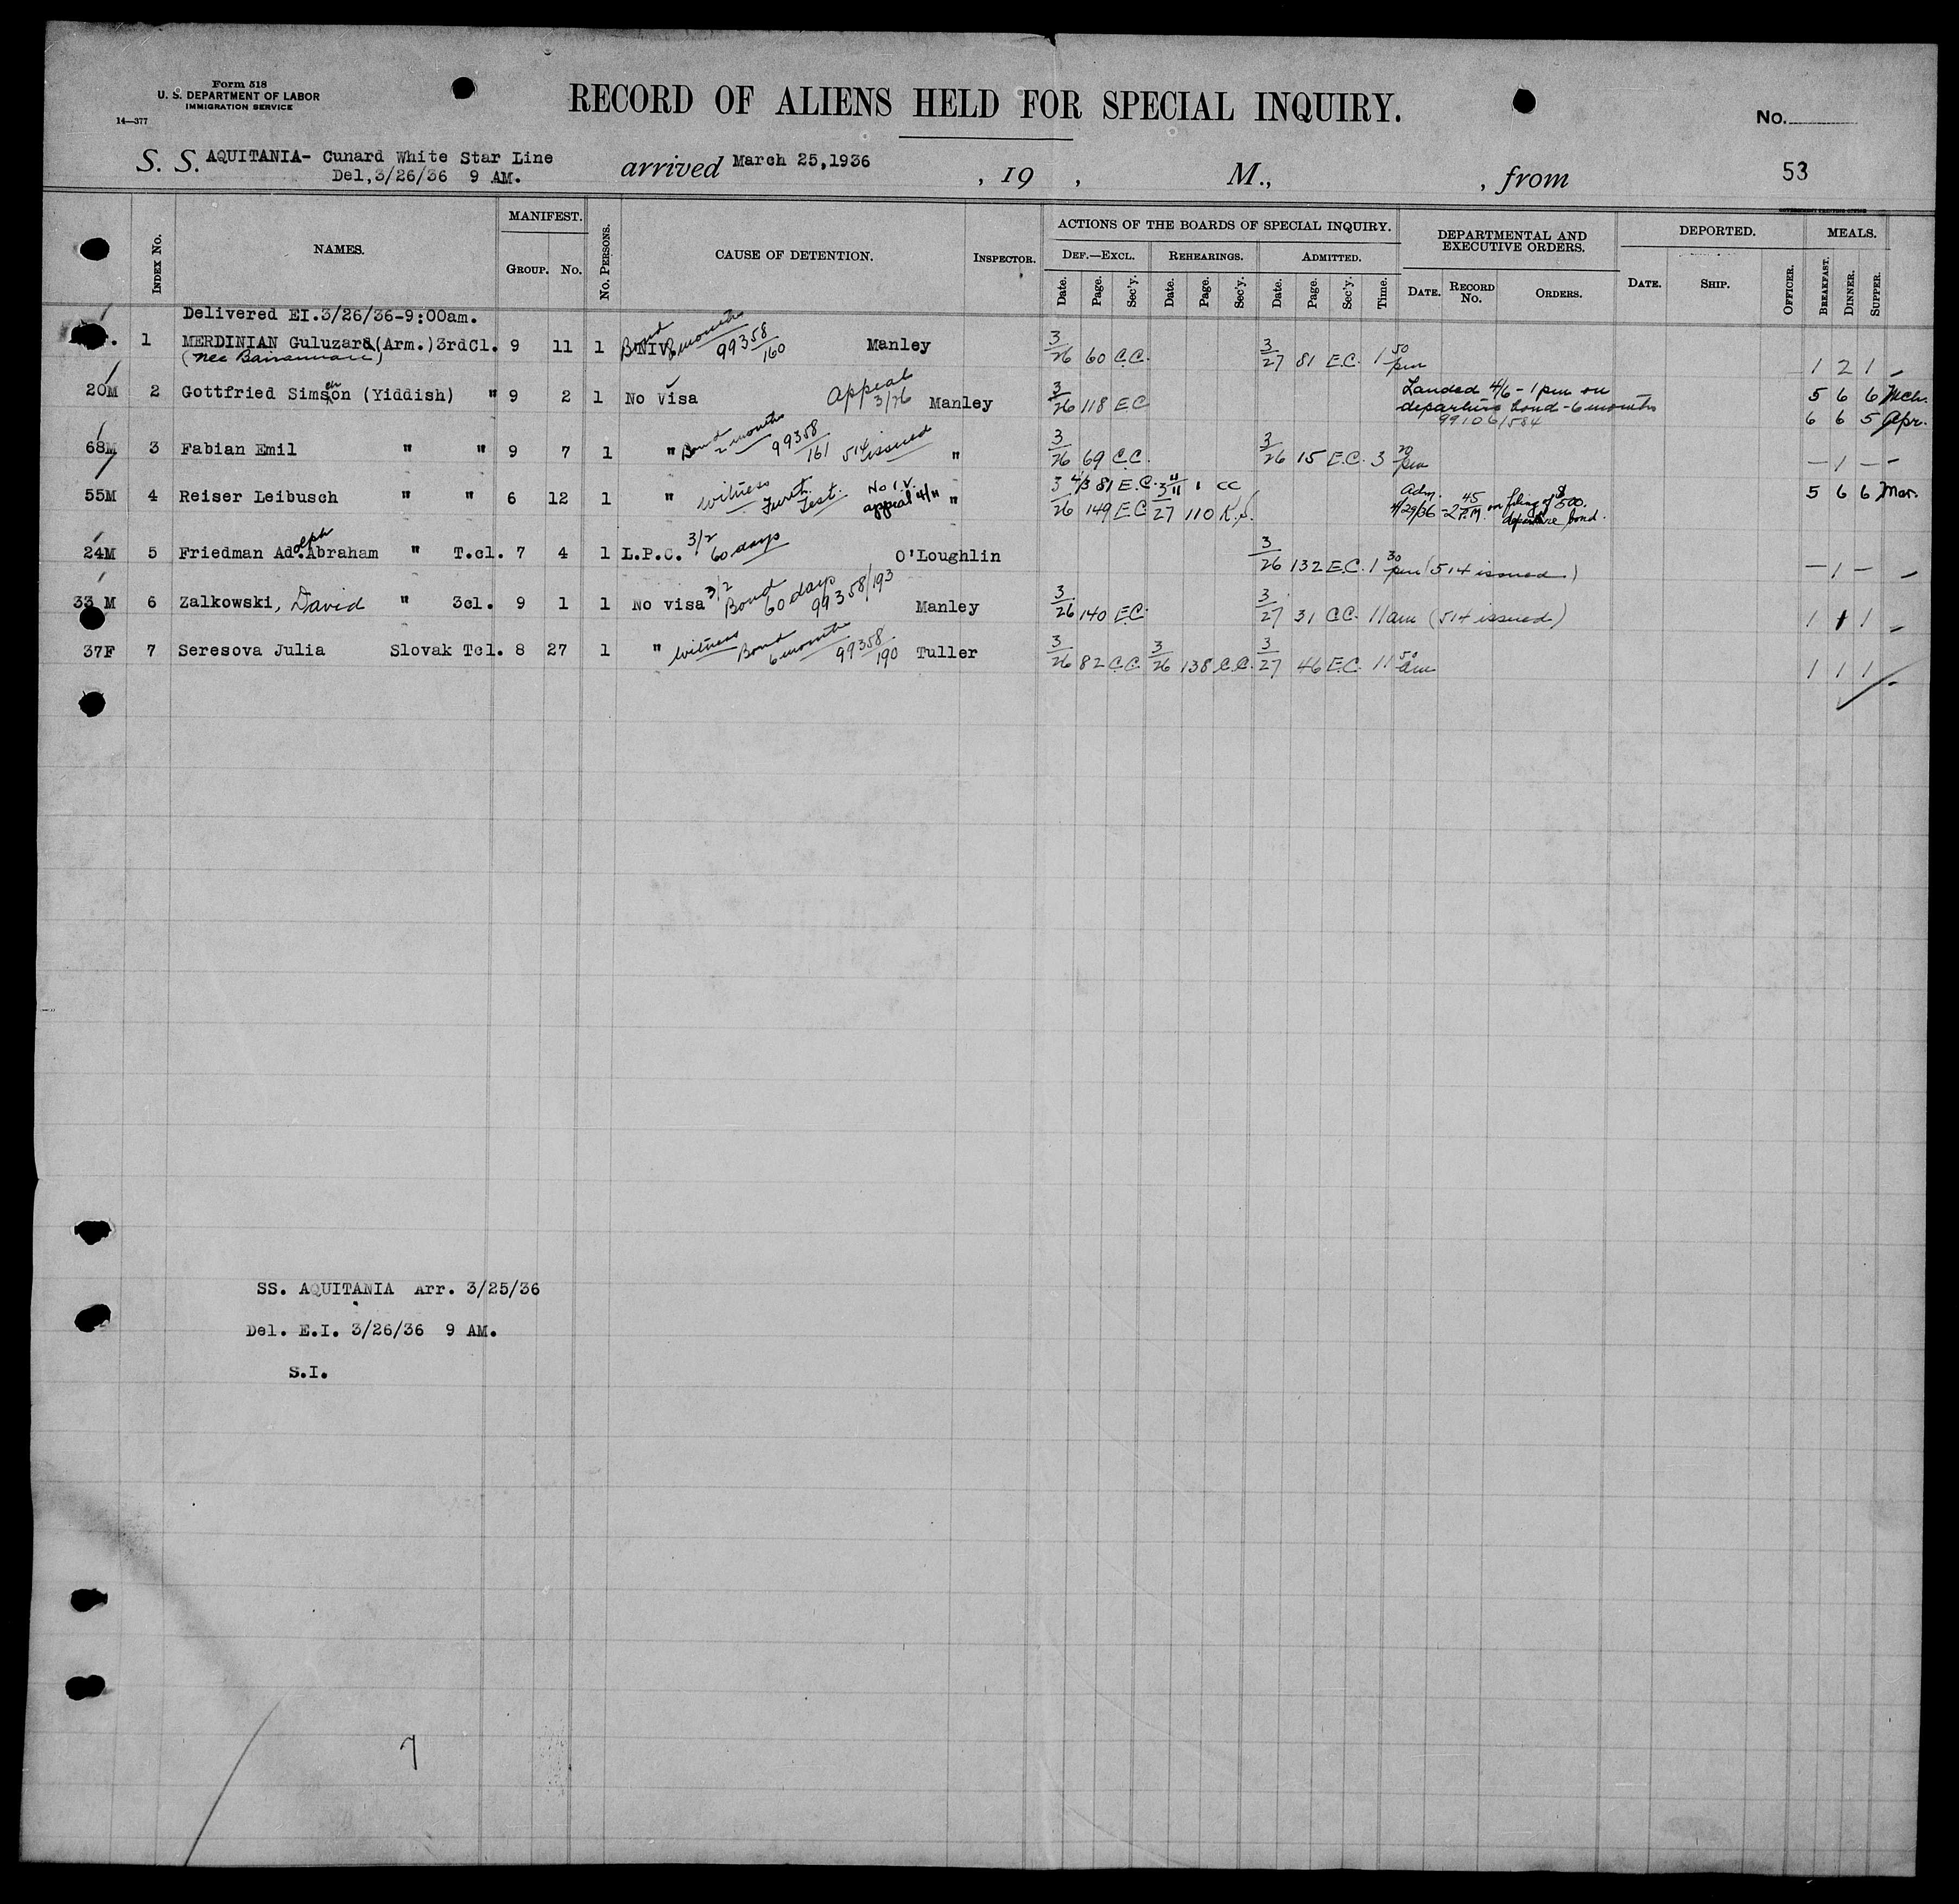 Form 518
U. S. DEPARTMENT OF LABOR
IMMIGRATION SERVICE
14—377
RECORD OF ALIENS HELD FOR SPECIAL INQUIRY.
No.
S. S. AQUITANIA- Cunard White Star Line arrived March 25,1936 , 19 , M., , from 53
Del,3/26/36 9 AM.
GOVERNMENT PRINTING OFFICE
INDEX No. NAMES. MANIFEST. GROUP. No. No. PERSONS. CAUSE OF DETENTION. INSPECTOR. ACTIONS OF THE BOARDS OF SPECIAL INQUIRY. DEPARTMENTAL AND EXECUTIVE ORDERS. DEPORTED. MEALS.
DEF.—EXCL. REHEARINGS. ADMITTED.
Date. Page. Sec'y. Date. Page. Sec'y. Date. Page. Sec'y. Time. DATE. RECORD No. ORDERS. DATE. SHIP. OFFICER. BREAKFAST. DINNER. SUPPER.
Delivered EI.3/26/36-9:00am.
1 MERDINIAN Guluzard (Arm.) 3rdCl. 9 11 1 NIV Bond 6 months 99358/160 Manley 3/26 60 C.C. 3/27 81 E.C. 1 50 pm 1 2 1 -
(nee
20M 2 Gottfried Simson (Yiddish) " 9 2 1 No Visa Appeal 3/26 Manley 3/26 118 E C Landed 4/6 - 1 pm on departure bond - 6 months 99106/584 5 6 6 Mch.
6 6 5 Apr.
68M 3 Fabian Emil " " 9 7 1 " Bond 2 months 99358/161 514 issued " 3/26 69 C.C. 3/26 15 E.C. 3 20 pm - 1 - -
55M 4 Reiser Leibusch " " 6 12 1 " witness Furth. Test. No I.V. appeal 4/11 " 3/26 149 E C 4/3 81 E.C. 3/27 110 K.S. 1 CC Adm. 4/29/36 - 2 45 P.M. on filing of $500. departure bond. 5 6 6 Mar.
24M 5 Friedman Adolph Abraham " T.cl. 7 4 1 L.P.C. 3/2 60 days O'Loughlin 3/26 132 E.C. 1 30 pm (514 issued) - 1 - -
33 M 6 Zalkowski, David " 3cl. 9 1 1 No visa 3/2 Bond 60 days 99358/193 Manley 3/26 140 E.C. 3/27 31 C.C. 11 am (514 issued) 1 1 1 -
37F 7 Seresova Julia Slovak Tcl. 8 27 1 " witness Bond 6 months 99358/190 Tuller 3/26 82 C.C. 3/26 138 C.C. 3/27 46 E.C. 11 50 am 1 1 1 -
SS. AQUITANIA Arr. 3/25/36
Del. E.I. 3/26/36 9 AM.
S.I.
7